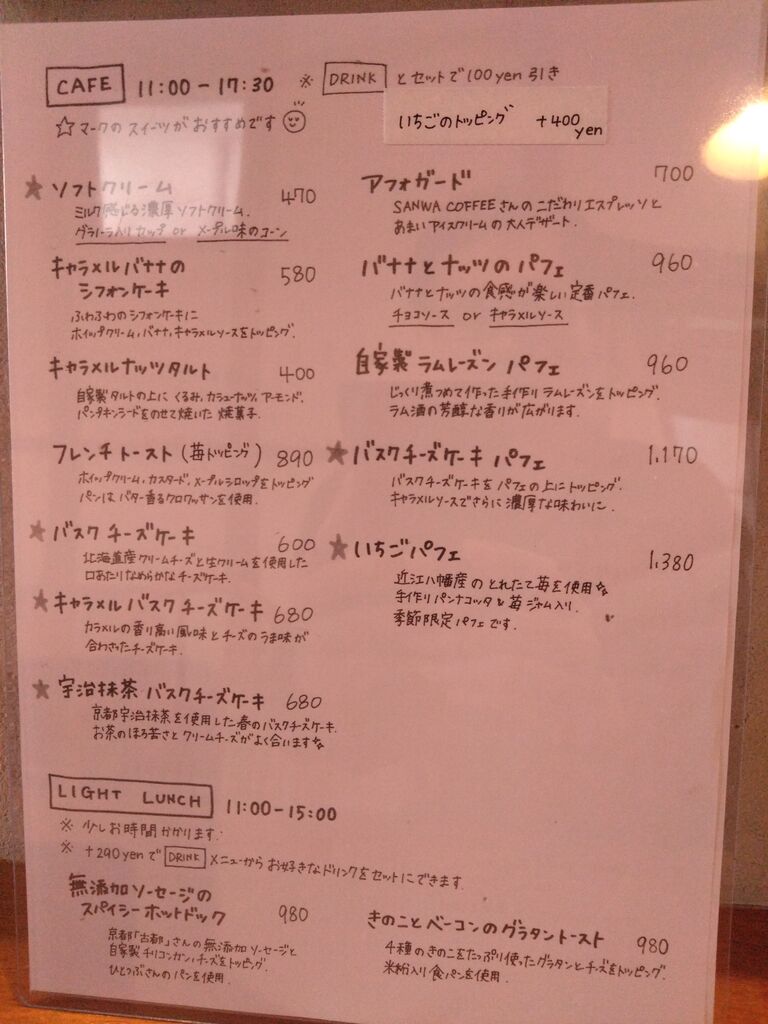 CAFE 11:00-17:30 ※ DRINK とセットで100yen引き
☆マークの スイーツが おすすめです
いちごのトッピング +400yen
★ ソフトクリーム 470
ミルク感じる濃厚ソフトクリーム.
グラノーラ入りカップ or メープル味のコーン
キャラメルバナナの
シフォンケーキ 580
ふわふわのシフォンケーキに
ホイップクリーム,バナナ,キャラメルソースをトッピング.
キャラメルナッツタルト 400
自家製タルトの上に くるみ,カシューナッツ,アーモンド,
パンプキンシードをのせて焼いた 焼菓子.
フレンチトースト(苺トッピング) 890
ホイップクリーム,カスタード,メープルシロップをトッピング
パンは バター香るクロワッサンを使用.
★ バスク チーズケーキ 600
北海道産クリームチーズと生クリームを使用した
口あたりなめらかなチーズケーキ.
★ キャラメル バスクチーズケーキ 680
カラメルの香り高い風味とチーズのうま味が
合わさったチーズケーキ.
★ 宇治抹茶 バスクチーズケーキ 680
京都宇治抹茶を使用した春のバスクチーズケーキ.
お茶のほろ苦さと クリームチーズがよく合います☆
アフォガード 700
SANWA COFFEEさんのこだわりエスプレッソと
あまいアイスクリームの大人デザート.
バナナとナッツの パフェ 960
バナナとナッツの食感が楽しい定番パフェ.
チョコソース or キャラメルソース
自家製 ラムレーズン パフェ 960
じっくり煮つめて作った手作り ラムレーズンをトッピング.
ラム酒の芳醇な香りが広がります.
★ バスクチーズケーキ パフェ 1,170
バスクチーズケーキを パフェの上にトッピング.
キャラメルソースでさらに濃厚な味わいに.
★ いちごパフェ 1,380
近江八幡産の とれたて苺を使用☆
手作りパンナコッタと苺ジャム入り.
季節限定パフェです.
LIGHT LUNCH 11:00-15:00
※ 少しお時間かかります.
※ +290yenで DRINK メニューから お好きなドリンクをセットにできます.
無添加ソーセージの
スパイシーホットドック 980
京都「古都」さんの無添加ソーセージと
自家製チリコンカン,チーズをトッピング.
ひとつぶさんのパンを使用.
きのことベーコンのグラタントースト 980
4種のきのこをたっぷり使ったグラタンとチーズをトッピング.
米粉入り食パンを使用.